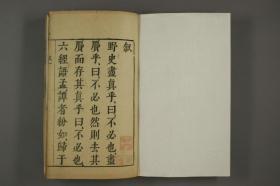 叙
野史盡真乎曰不必也盡
贗乎曰不必也然則去其
贗而存其真乎曰不必也
六經語孟譚者紛如歸于